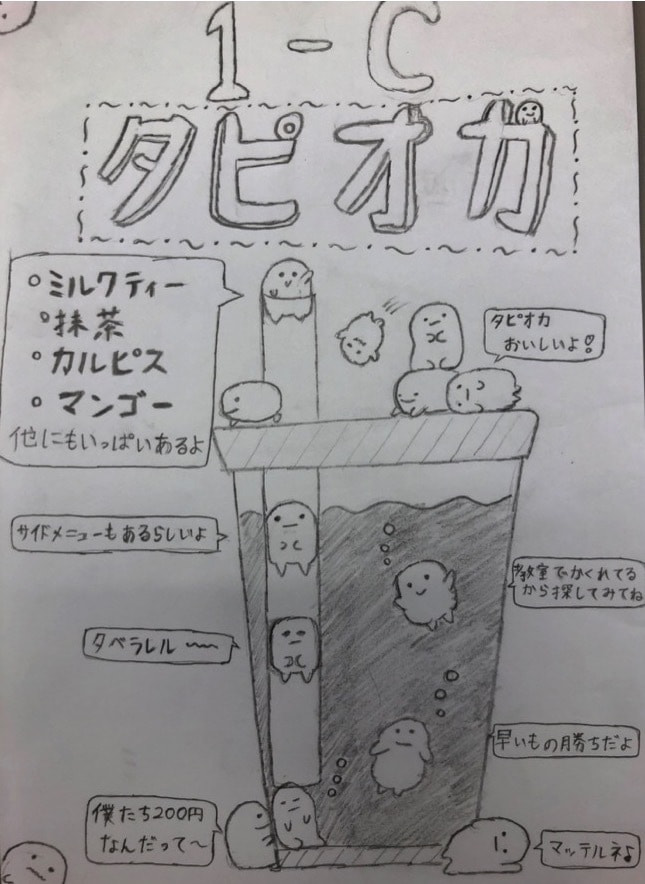 1-C
タピオカ
°ミルクティー
°抹茶
°カルピス
°マンゴー
他にもいっぱいあるよ
タピオカ
おいしいよ!
サイドメニューもあるらしいよ
教室でかくれてる
から探してみてね
タベラレル〜〜
早いもの勝ちだよ
僕たち200円
なんだって〜
マッテルネ♪